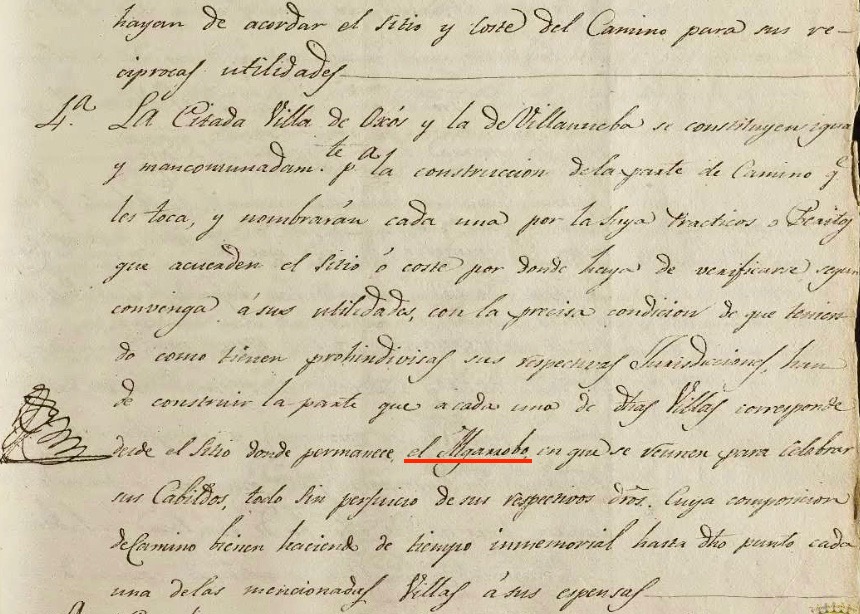 hayan de acordar el sitio y coste del Camino para sus re-
ciprocas utilidades
4.ª La Citada Villa de Oxós y la de Villanueba se constituyen igual
y mancomunadam.te pª la construccion de la parte de Camino q.e
les toca, y nombrarán cada una por la suya Practicos o Peritos
que acuerden el sitio ó coste por donde haya de verificarse segun
convenga á sus utilidades, con la precisa condicion de que tenien-
do como tienen prohindivisas sus respectivas Jurisdiciones, han
de construir la parte que a cada una de dhas Villas corresponde
desde el sitio donde permanece el Algarrobo en que se reunen para Celebrar
sus Cabildos, todo sin perjuicio de sus respectivos dros. Cuya composicion
de Camino bienen haciendo de tiempo inmemorial hasta dho punto cada
una de las mencionadas Villas á sus espensas